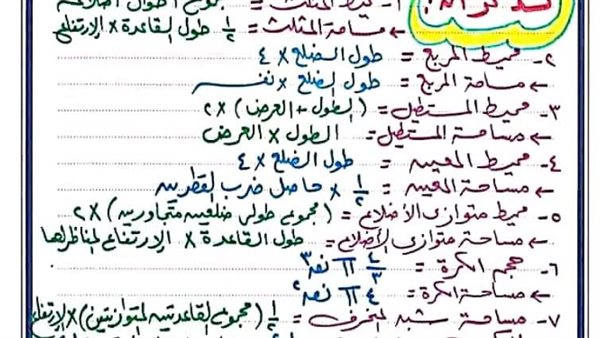 تذكر أن:
١- محيط المثلث = مجموع أطوال أضلاعه
← مساحة المثلث = ½ طول القاعدة × الارتفاع
٢- محيط المربع = طول الضلع × ٤
← مساحة المربع = طول الضلع × نفسه
٣- محيط المستطيل = (الطول + العرض) × ٢
← مساحة المستطيل = الطول × العرض
٤- محيط المعين = طول الضلع × ٤
← مساحة المعين = ½ × حاصل ضرب القطرين
٥- محيط متوازي الأضلاع = (مجموع طولى ضلعين متجاورين) × ٢
← مساحة متوازى الأضلاع = طول القاعدة × الارتفاع المناظر لها
٦- حجم الكرة = ٤/٣ π نق³
← مساحة الكرة = ٤ π نق²
٧- مساحة شبه المنحرف = ½ (مجموع القاعدتين المتوازيتين) × الارتفاع